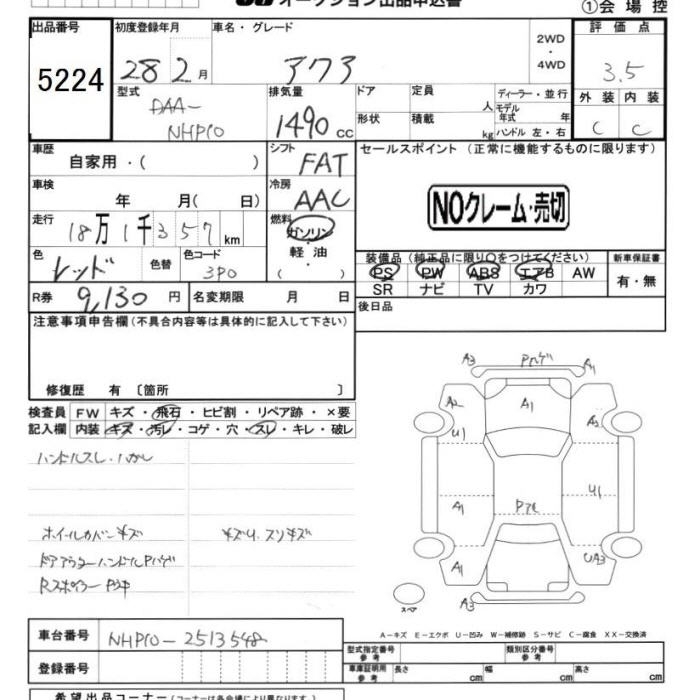 オークション出品申込書
①会場控
出品番号
5224
初度登録年月
28 2月
車名・グレード
アクア
2WD
・
4WD
評価点
3.5
型式
DAA-
NHP10
排気量
1490 cc
ドア
定員
人
形状
積載
kg
ディーラー・並行
モデル年式 年
ハンドル 左・右
外装 内装
C C
車歴
自家用・( )
シフト
FAT
車検
年 月( 日)
冷房
AAC
走行
18万1千357km
燃料
ガソリン
軽油
( )
色
レッド
色替
色コード
3P0
R券 9,130円
名変期限 月 日
セールスポイント (正常に機能するものに限ります)
NOクレーム・売切
装備品 (純正品に限り○をつけてください)
PS PW ABS エアB AW
SR ナビ TV カワ
新車保証書
有・無
後日品
注意事項申告欄(不具合内容等は具体的に記入して下さい)
修復歴 有 〔箇所 〕
検査員記入欄
FW キズ・飛石・ヒビ割・リペア跡・×要
内装 キズ・汚レ・コゲ・穴・スレ・キレ・破レ
ハンドルスレ.ハガレ
ホイールカバーキズ
キズリ.スリキズ
ドアアウターハンドルPハゲ
Rスポイラー
A3 Pハゲ A1
A2 A1 A2
U1
A1 U1
A1 UA3
スペア
A3
A-キズ E-エクボ U-凹み W-補修跡 S-サビ C-腐食 XX-交換済
車台番号 NHP10-2513548
登録番号
型式指定番号 参考
類別区分番号 参考
車庫証明用 参考
長さ cm 幅 cm 高さ cm
希望出品コーナー